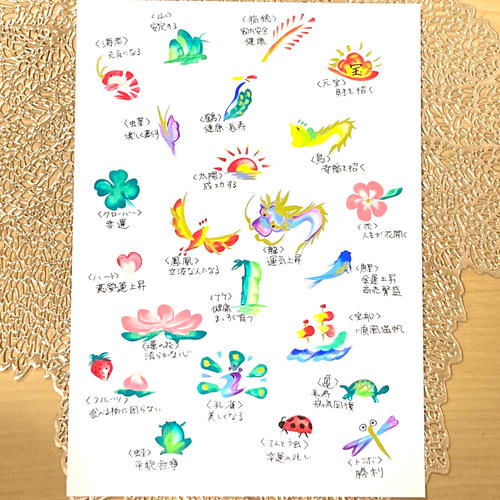 〈山〉
安定する
〈稲穂〉
家内安全
健康
〈海老〉
元気になる
宝
〈元宝〉
財を招く
〈虫草〉
〈鶴〉
健康・長寿
〈鳥〉
幸福を招く
〈太陽〉
成功する
〈クローバー〉
幸運
〈花〉
人生が花開く
〈鳳凰〉
立派な人になる
〈龍〉
運気上昇
〈ハート〉
恋愛運上昇
金運上昇
商売繁盛
〈竹〉
健康
まっすぐ育つ
〈宝船〉
順風満帆
〈蓮の花〉
清らかな心
〈フルーツ〉
食べる物に困らない
〈孔雀〉
美しくなる
〈亀〉
長寿
〈蛙〉
平穏無事
〈てんとう虫〉
幸運の兆し
〈トンボ〉
勝利